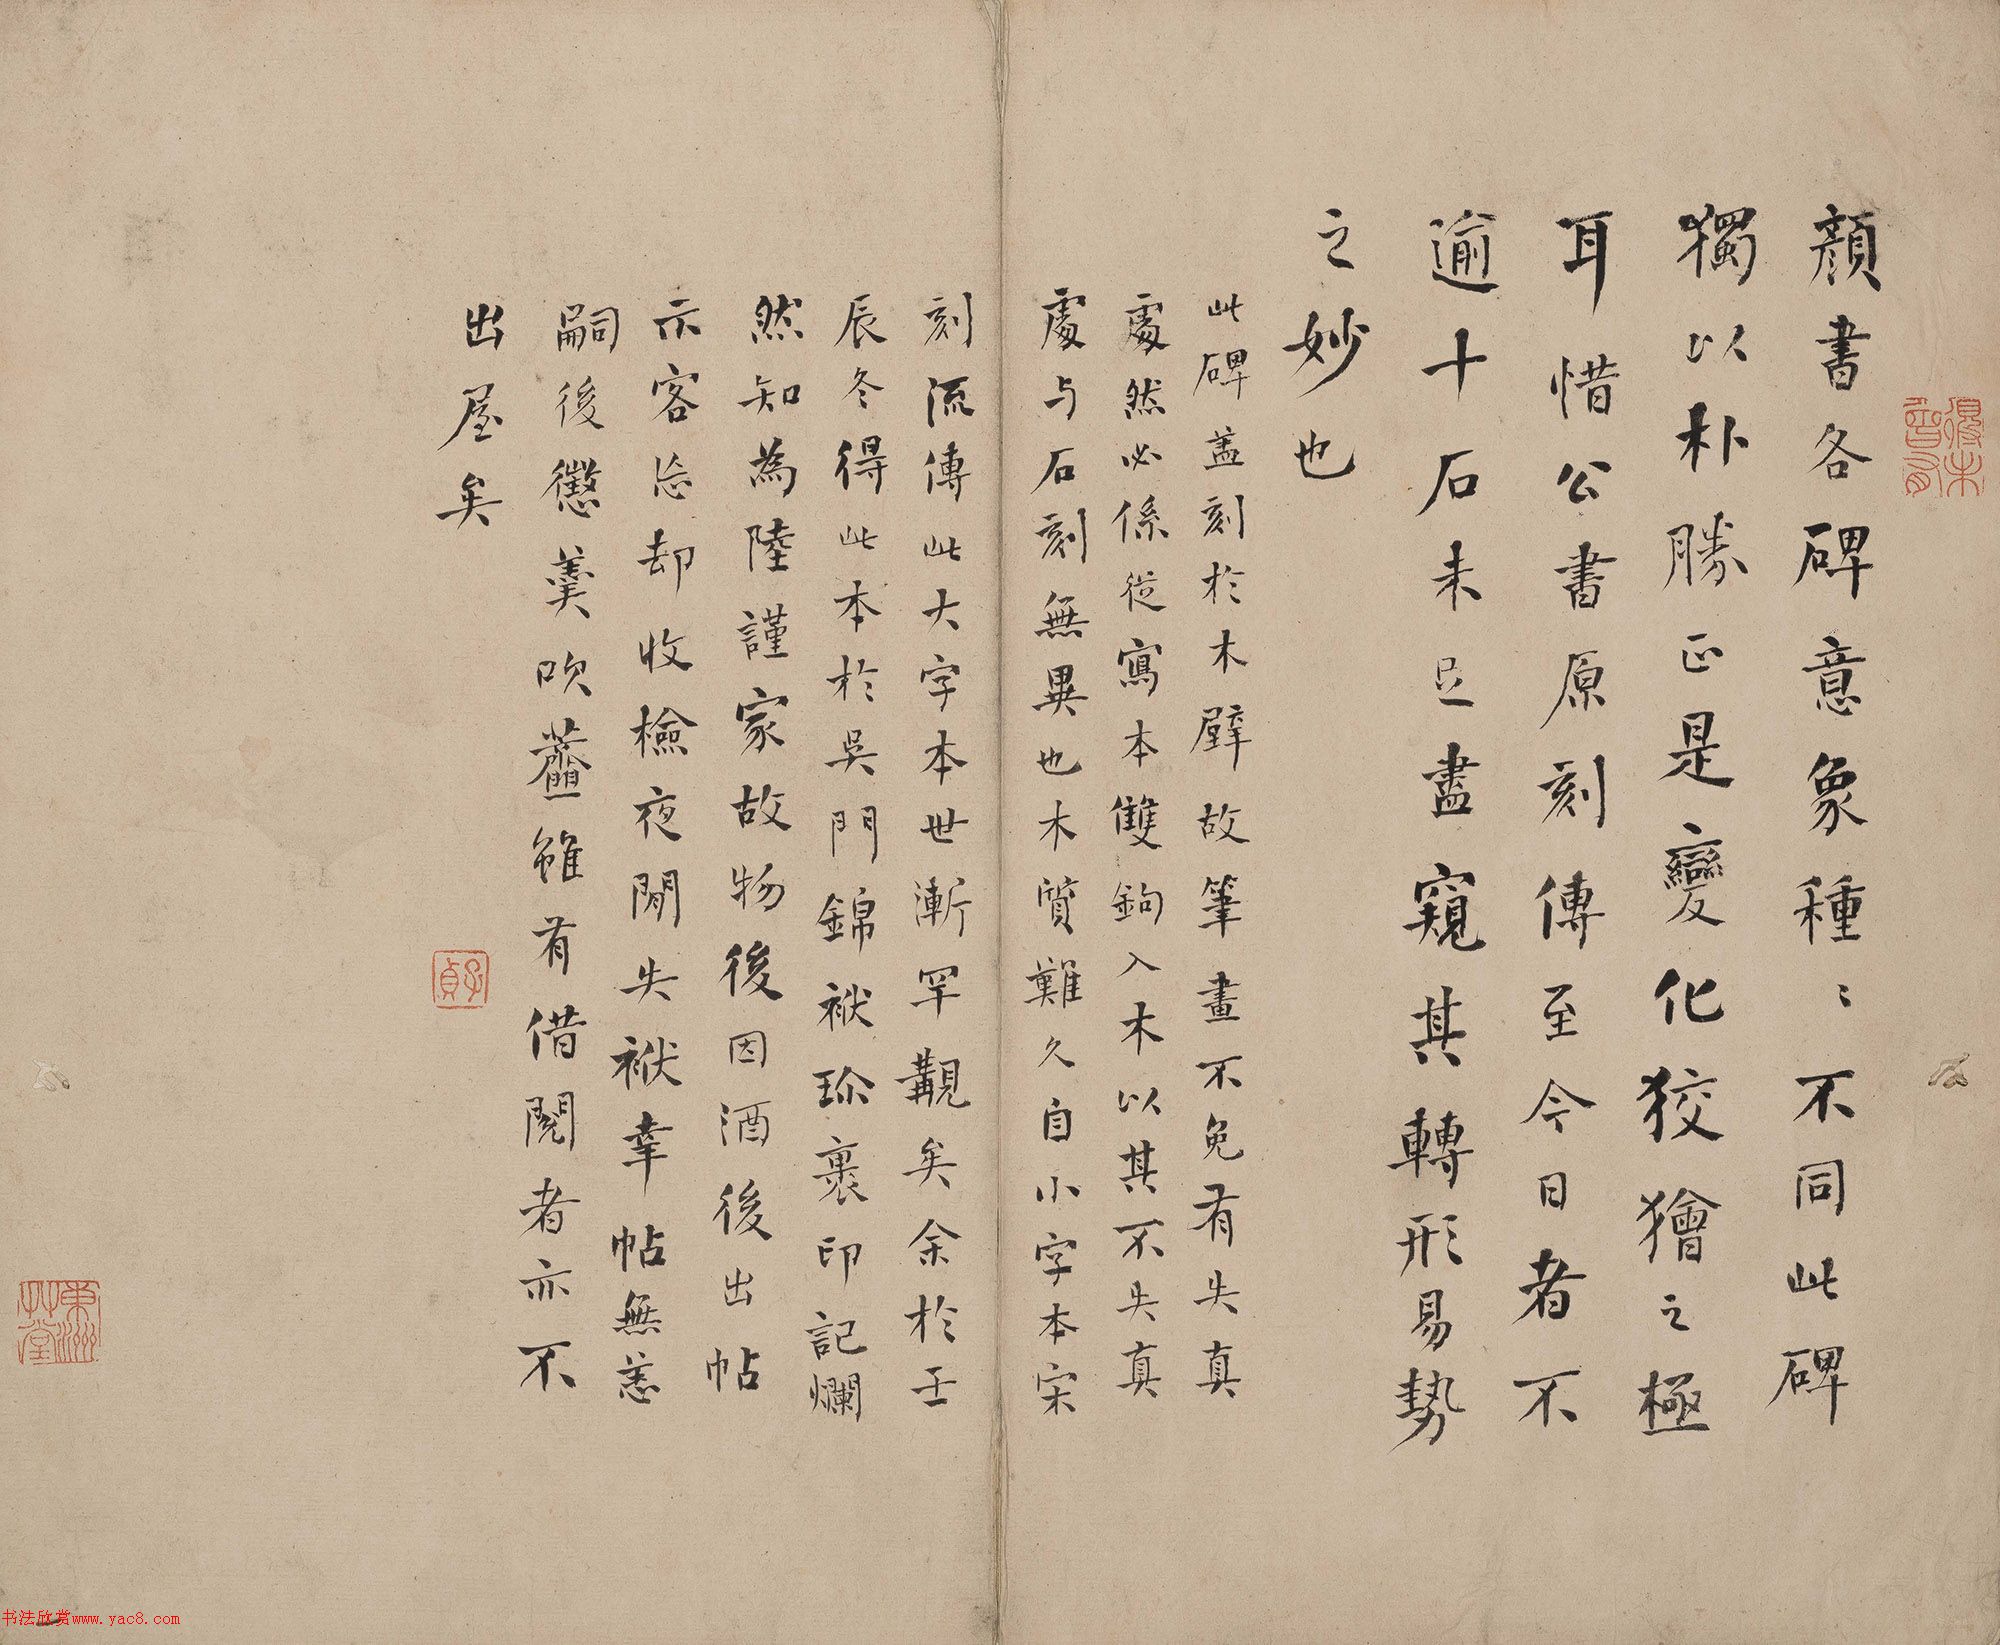 顏書各碑意象種〻不同此碑
獨以朴勝正是變化狡獪之極
耳惜公書原刻傳至今日者不
逾十石未足盡窺其轉形易勢
之妙也
此碑蓋刻於木壁故筆畫不免有失真
處然必係從寫本雙鉤入木以其不失真
處与石刻無異也木質難久自小字本宋
刻流傳此大字本世漸罕覯矣余於壬
辰冬得此本於吳門錦袱珍裹印記爛
然知為陸謹家故物後因酒後出帖
示客忘却收檢夜閒失袱幸帖無恙
嗣後懲羹吹虀雖有借閱者亦不
出屋矣
子貞
東洲草堂
书法欣赏www.yac8.com